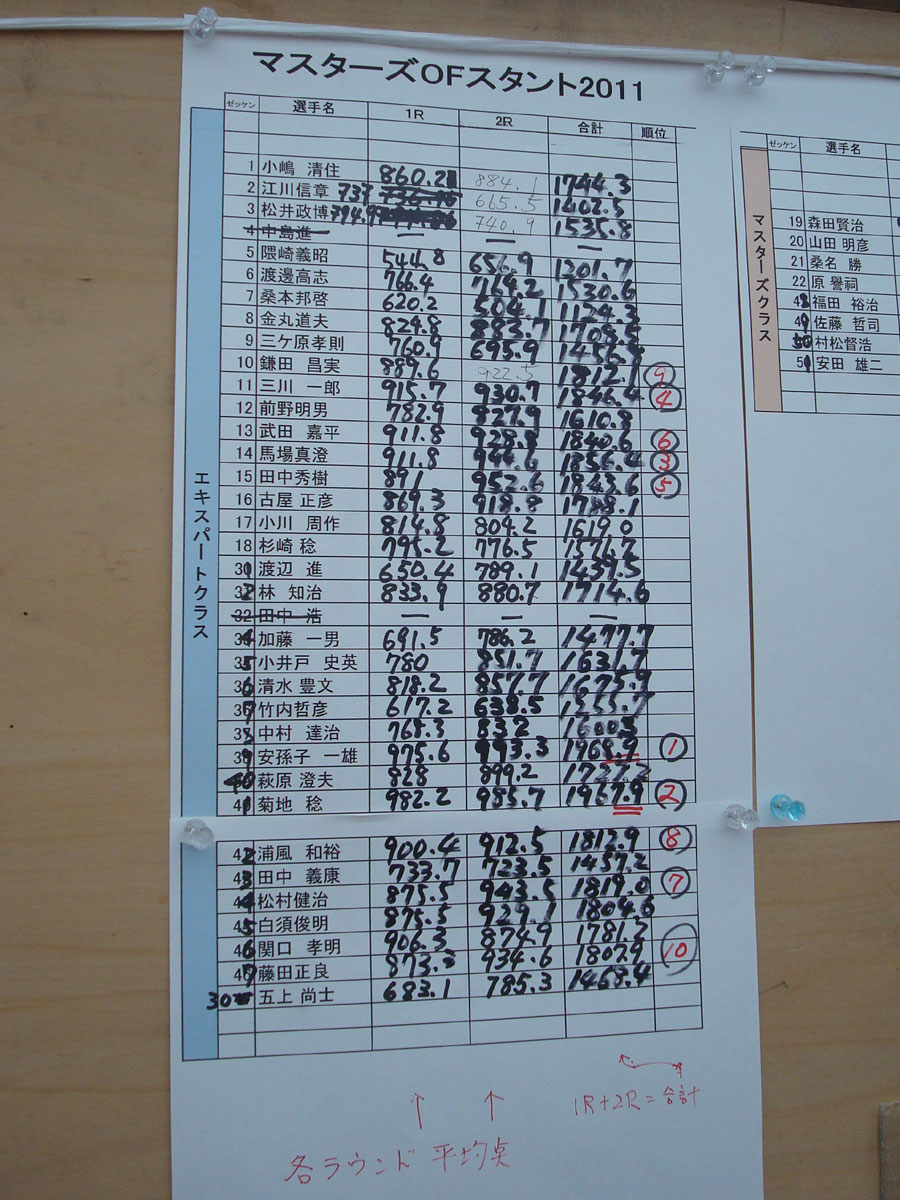 マスターズOFスタント2011
エキスパートクラス
ゼッケン 選手名 1R 2R 合計 順位
1 小嶋 清住 860.2 884.1 1744.3
2 江川信章 737 665.5 1402.5
3 松井政博 794.9 740.9 1535.8
4 中島進 — — —
5 隈崎義昭 544.8 656.9 1201.7
6 渡邊高志 766.4 764.2 1530.6
7 桑本邦啓 620.2 504.1 1124.3
8 金丸道夫 824.8 883.7 1708.5
9 三ケ原孝則 760.9 695.9 1456.8
10 鎌田 昌実 889.6 922.5 1812.1 9
11 三川 一郎 915.7 930.7 1846.4 4
12 前野明男 782.9 827.9 1610.8
13 武田 嘉平 911.8 928.8 1840.6 6
14 馬場真澄 911.8 944.6 1856.4 3
15 田中秀樹 891 952.6 1843.6 5
16 古屋 正彦 869.3 918.8 1788.1
17 小川 周作 814.8 804.2 1619.0
18 杉崎 稔 795.2 776.5 1571.7
31 渡辺 進 650.4 789.1 1439.5
32 林 知治 833.9 880.7 1714.6
32 田中 浩 — — —
34 加藤 一男 691.5 786.2 1477.7
35 小井戸 史英 780 851.7 1631.7
36 清水 豊文 818.2 857.7 1675.9
37 竹内哲彦 617.2 638.5 1255.7
38 中村 達治 768.3 832 1600.3
39 安孫子 一雄 975.6 993.3 1968.9 1
40 萩原 澄夫 828 899.2 1727.2
41 菊地 稔 982.2 985.7 1967.9 2
42 浦風 和裕 900.4 912.5 1812.9 8
43 田中 義康 733.7 723.5 1457.2
44 松村健治 875.5 943.5 1819.0 7
45 白須俊明 875.5 929.1 1804.6
46 関口 孝明 906.3 874.9 1781.2
47 藤田正良 873.3 934.6 1807.9 10
30 五上 尚士 683.1 785.3 1468.4
↑ ↑ 1R+2R=合計
各ラウンド 平均点
マスターズクラス
ゼッケン 選手名
19 森田賢治
20 山田 明彦
21 桑名 勝
22 原 譽祠
48 福田 裕治
49 佐藤 哲司
50 村松督浩
51 安田 雄二